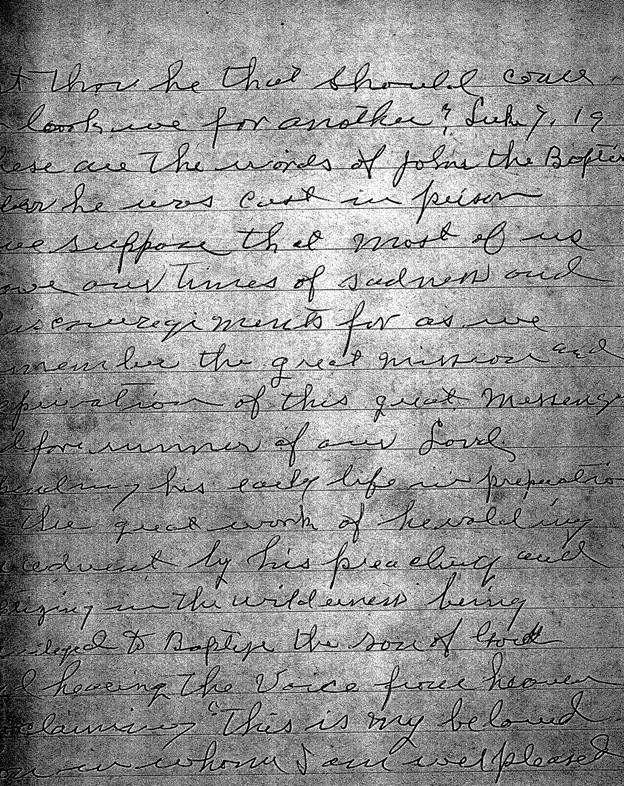 t thou he that should come
look we for another? Luke 7. 19
hese are the words of John the Baptis
ter he was cast in prison
we suppose that most of us
ave our times of sadness and
iscouragements for as we
member the great mission and
spiration of this great Messeng
d forerunner of our Lord,
pending his early life in preparatio
the great work of heralding
advent by his preaching and
tizing in the wilderness being
to Baptize the son of God
d hearing the Voice from heaven
claiming "This is my beloved
on in whom I am well pleased